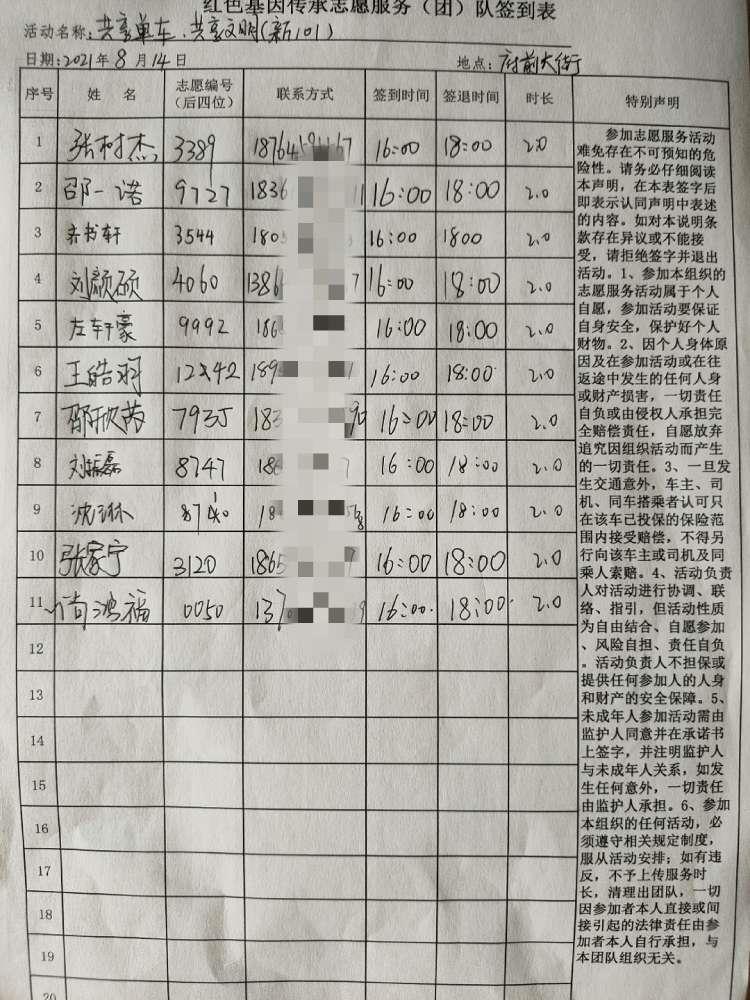 红色基因传承志愿服务（团）队签到表
活动名称：共享单车、共享文明(新101)
日期：2021年8月14日 地点：府前大街
序号 姓名 志愿编号（后四位） 联系方式 签到时间 签退时间 时长 特别声明
1 张树杰 3389 16:00 18:00 2.0
2 邵一诺 9727 1836 16:00 18:00 2.0
3 亲书轩 3544 180 16:00 1800 2.0
4 刘颜硕 4060 1386 7 16:00 18:00 2.0
5 左轩豪 9992 186 16:00 18:00 2.0
6 王皓羽 189 1 16:00 18:00 2.0
7 邵欣芮 7935 183 16:00 18:00 2.0
8 刘振磊 8747 186 16:00 18:00 2.0
9 沈琳 18 16:00 18:00 2.0
10 张家宁 3120 1865 16:00 18:00 2.0
11 尚鸿福 0050 137 9 16:00 18:00 2.0
12
13
14
15
16
17
18
19
20
参加志愿服务活动
难免存在不可预知的危
险性。请务必仔细阅读
本声明，在本表签字后
即表示认同声明中表述
的内容。如对本说明条
款存在异议或不能接
受，请拒绝签字并退出
活动。1、参加本组织的
志愿服务活动属于个人
自愿，参加活动要保证
自身安全，保护好个人
财物。2、因个人身体原
因及在参加活动或在往
返途中发生的任何人身
或财产损害，一切责任
自负或由侵权人承担完
全赔偿责任，自愿放弃
追究因组织活动而产生
的一切责任。3、一旦发
生交通意外，车主、司
机、同车搭乘者认可只
在该车已投保的保险范
围内接受赔偿，不得另
行向该车主或司机及同
乘人索赔。4、活动负责
人对活动进行协调、联
络、指引，但活动性质
为自由结合、自愿参加
、风险自担、责任自负
。活动负责人不担保或
提供任何参加人的人身
和财产的安全保障。5、
未成年人参加活动需由
监护人同意并在承诺书
上签字，并注明监护人
与未成年人关系，如发
生任何意外，一切责任
由监护人承担。6、参加
本组织的任何活动，必
须遵守相关规定制度，
服从活动安排；如有违
反，不予上传服务时
长，清理出团队，一切
因参加者本人直接或间
接引起的法律责任由参
加者本人自行承担，与
本团队组织无关。